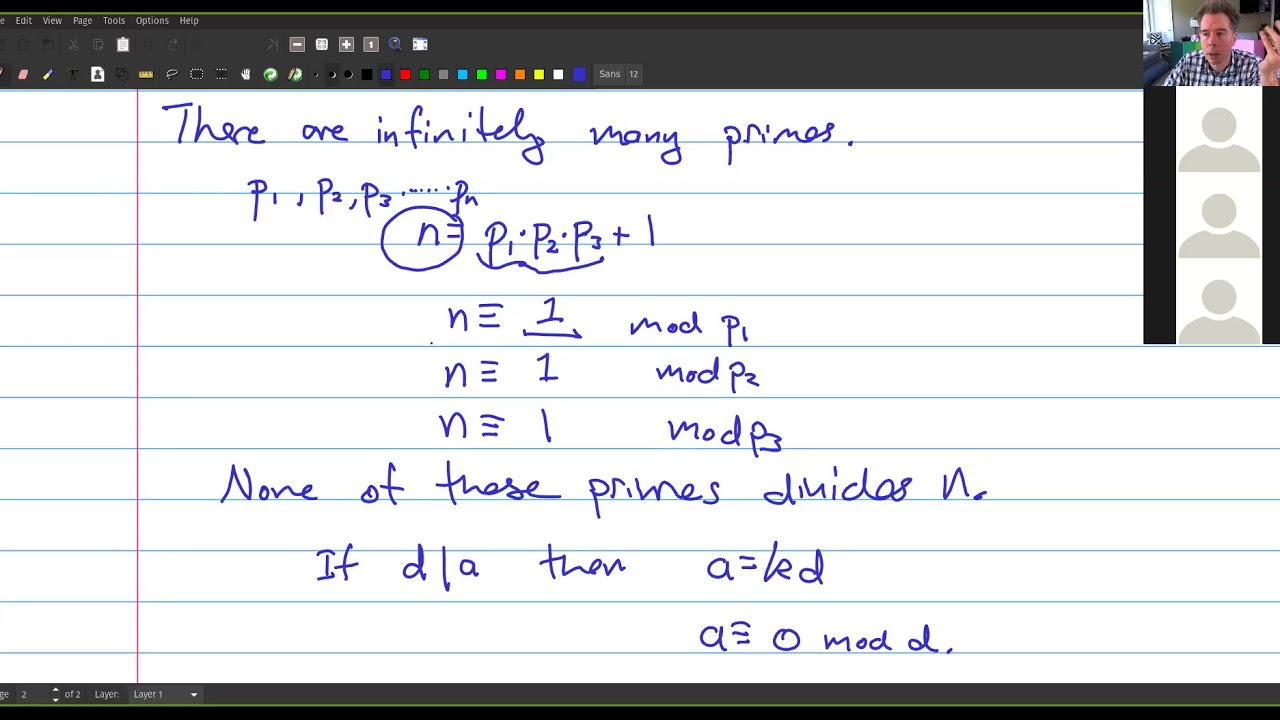 Edit View Page Tools Options Help
Sans 12
There are infinitely many primes.
p1, p2, p3 ...... pn
n = p1·p2·p3 + 1
n ≡ 1 mod p1
n ≡ 1 mod p2
n ≡ 1 mod p3
None of these primes divides n.
If d|a then a = kd
a ≡ 0 mod d.
2 of 2 Layer: Layer 1